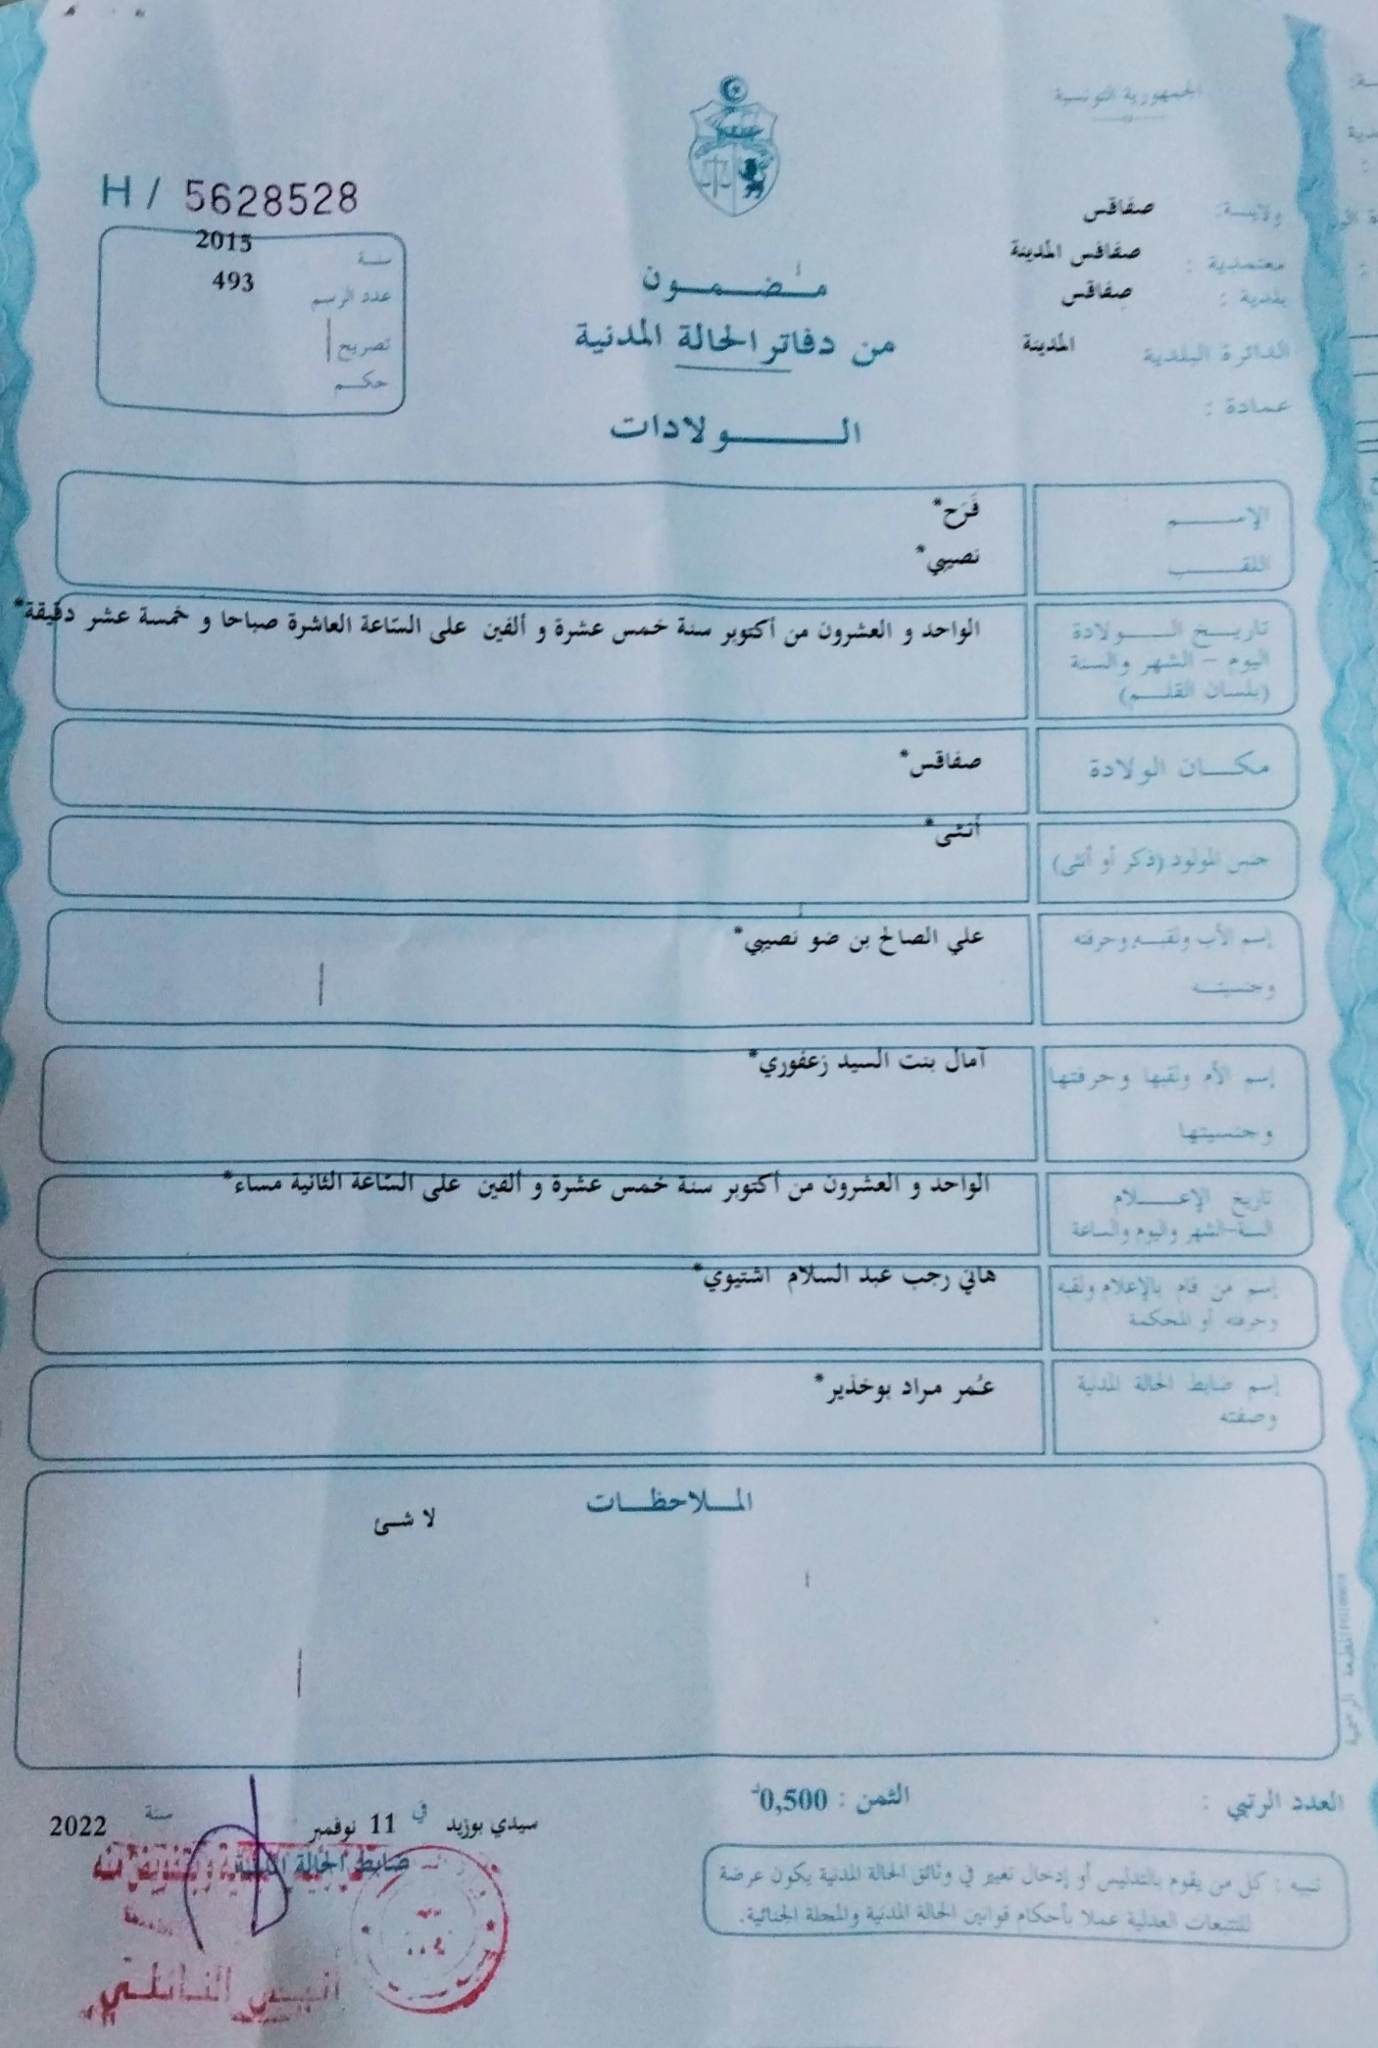 الجمهورية التونسية
H / 5628528
ولايـــة: صفاقس
معتمدية : صفاقس المدينة
بلدية : صفاقس
الدائرة البلدية المدينة
عمادة :
سنـة 2015
عدد الرسم 493
تصريح
حكـم
مـــضـــمـــون
من دفاتر الحالة المدنية
الـــــولادات
الإســـــم فَرَح*
اللقـــــب نصيبي*
تاريـــخ الـــــولادة الواحد و العشرون من أكتوبر سنة خمس عشرة و ألفين على السّاعة العاشرة صباحا و خمسة عشر دقيقة*
اليوم – الشهر والسنة
(بلسان القلـــم)
مكـــان الولادة صفاقس*
جنس المولود (ذكر أو أنثى) أنثى*
إسم الأب ولقبـــه وحرفته علي الصالح بن ضو نصيبي*
وجنسيتـــه
إسم الأم ولقبها وحرفتها آمال بنت السيد زعفوري*
وجنسيتها
تاريخ الإعـــــلام الواحد و العشرون من أكتوبر سنة خمس عشرة و ألفين على السّاعة الثانية مساء*
السنة-الشهر واليوم والساعة
إسم من قام بالإعلام ولقبه هاني رجب عبد السلام اشتيوي*
وحرفته أو المحكمة
إسم ضابط الحالة المدنية عُمر مراد بوخذير*
وصفته
المـــلاحظـــات
لا شئ
العدد الرتبي :
الثمن : 0,500د
سيدي بوزيد في 11 نوفمبر سنة 2022
ضابط الحالة المدنية
تنبيه : كل من يقوم بالتدليس أو إدخال تغيير في وثائق الحالة المدنية يكون عرضة
للتتبعات العدلية عملا بأحكام قوانين الحالة المدنية والمجلة الجنائية.
المطبعة الرسمية